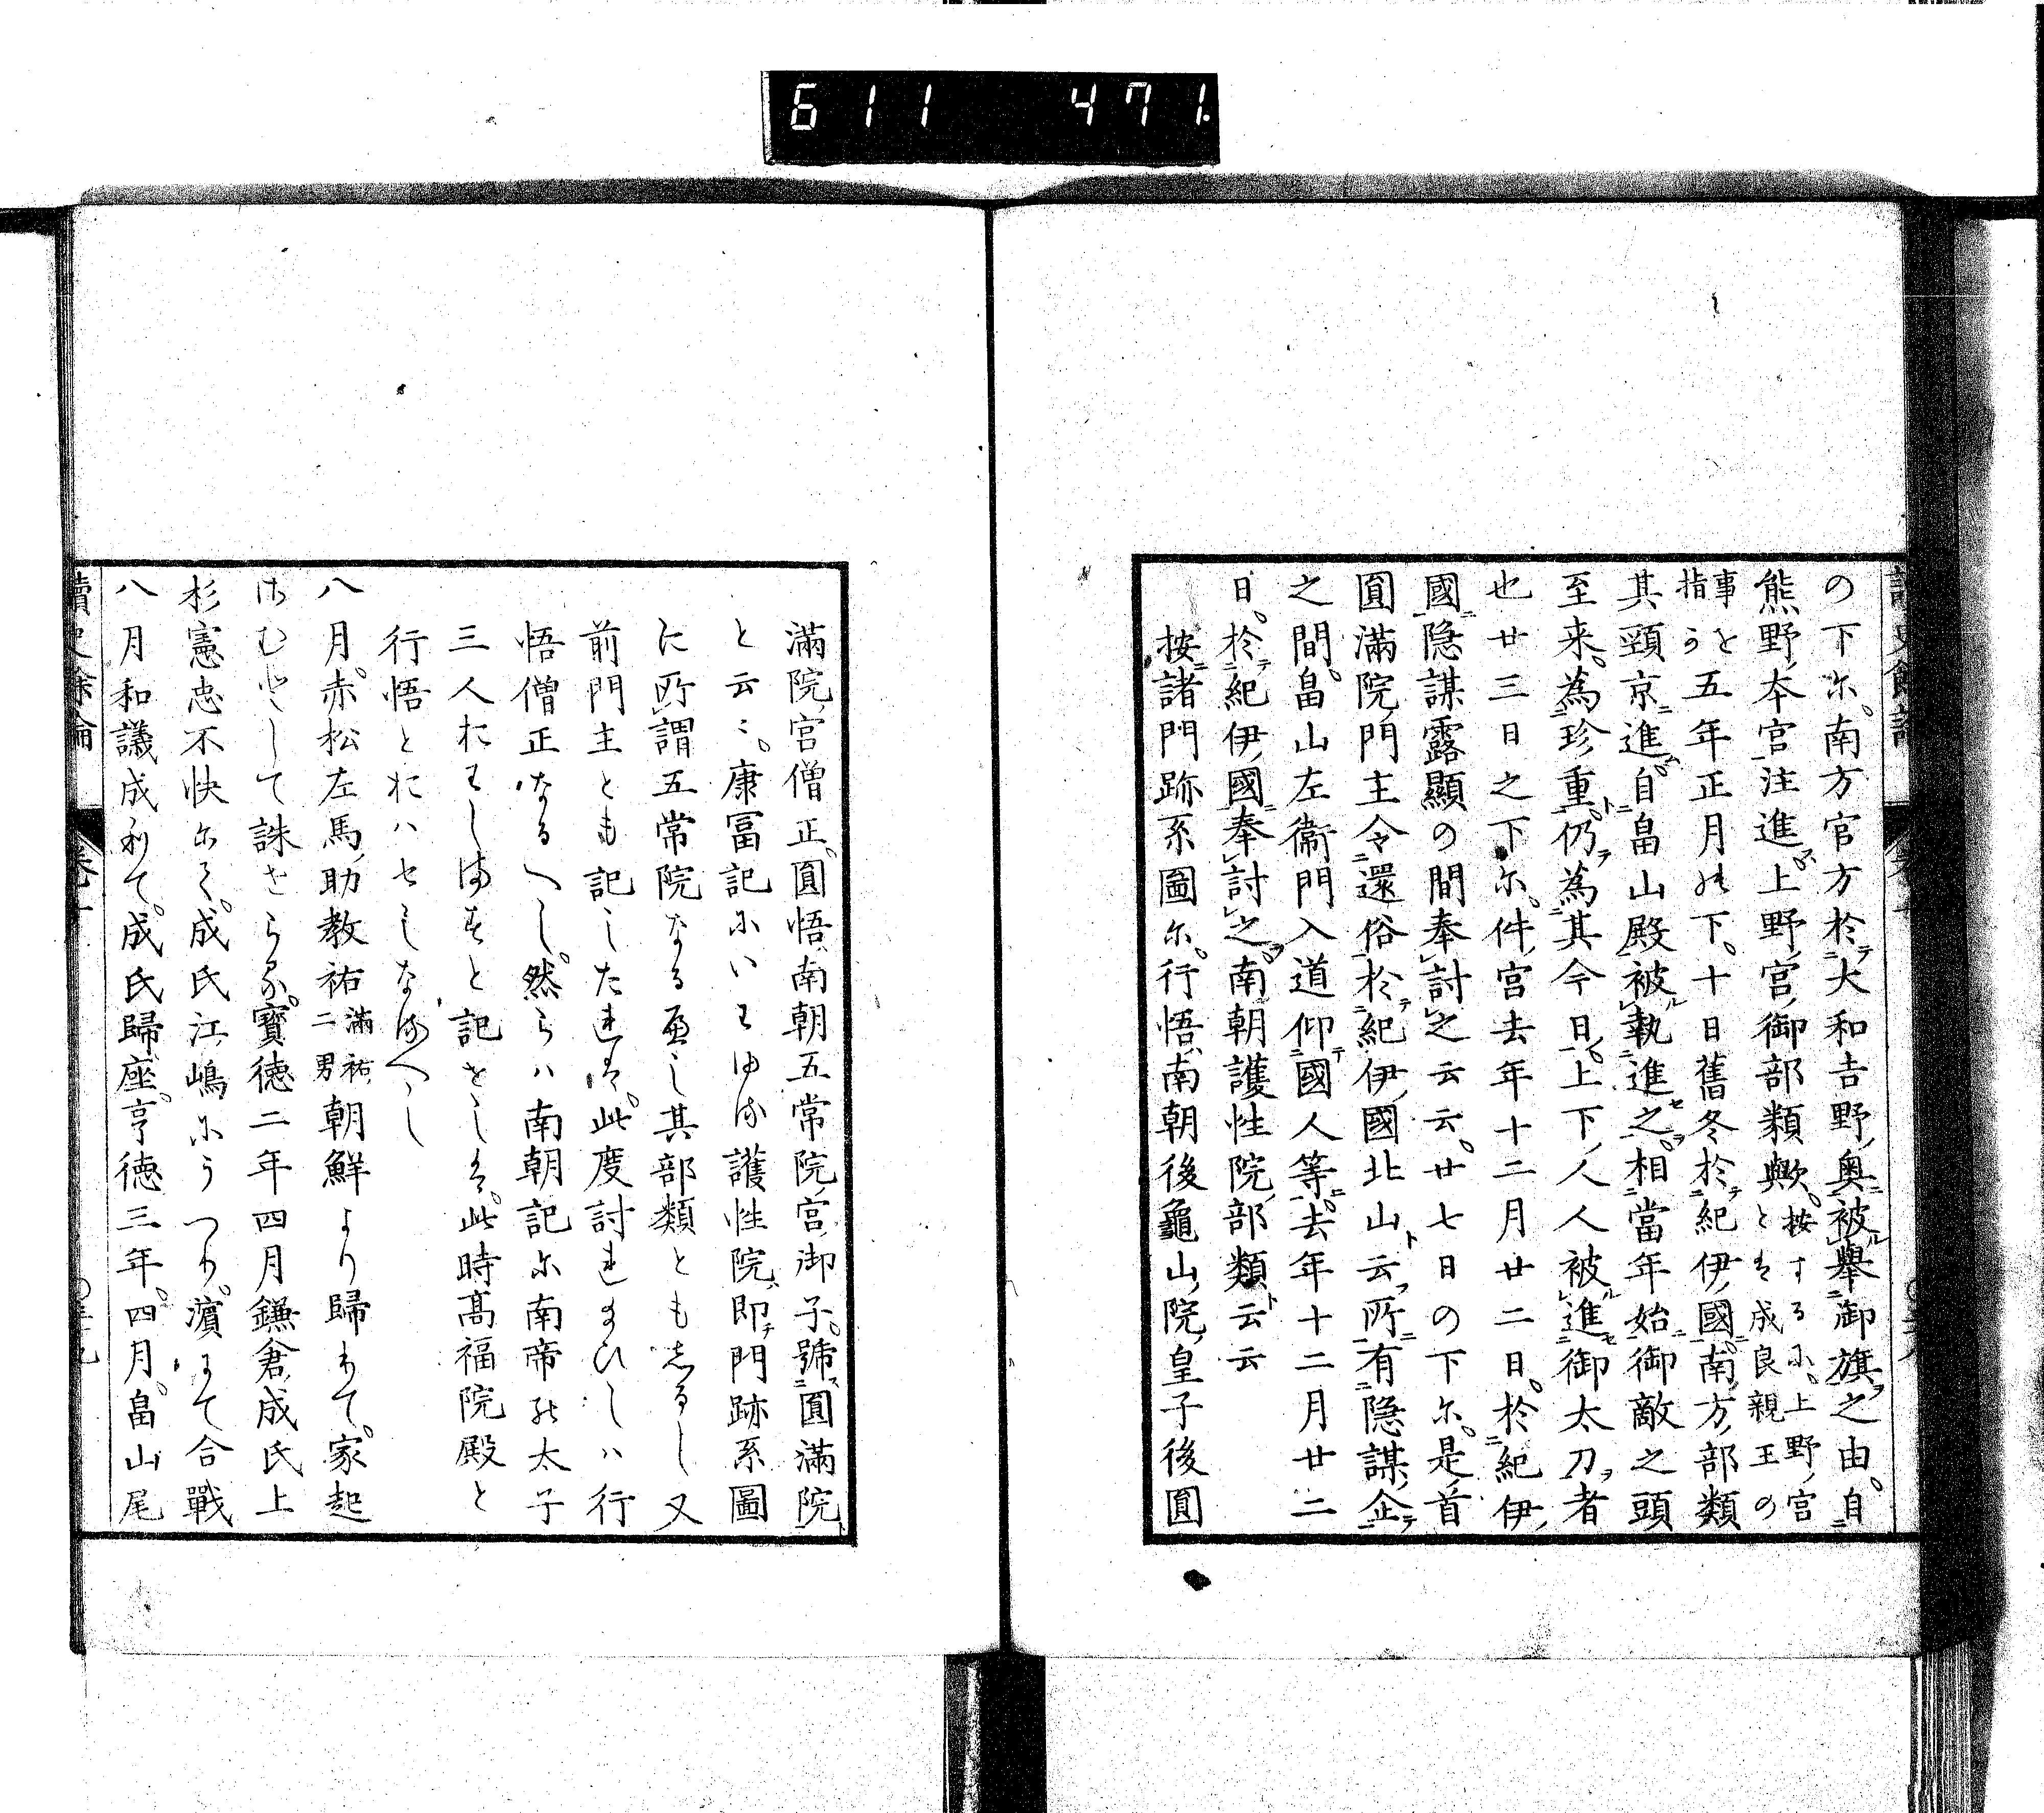 611 471.
の下尓。南方官方於大和吉野奥被舉御旗之由。自
熊野本宮注進。上野宮御部類歟。按するに。上野宮
とは成良親王の
事を
指り五年正月の下。十日舊冬於紀伊國南方部類
其頸京進。自畠山殿被執進之。相當年始御敵之頭
至来。為珍重。仍為其今日。上下人人被進御太刀者
也廿三日之下尓。件宮去年十二月廿二日。於紀伊
國隠謀露顯の間奉討之云云。廿七日の下尓。是首
圓滿院門主令還俗於紀伊國北山云所有隠謀企
之間。畠山左衞門入道仰國人等。去年十二月廿二
日。於紀伊國奉討之。南朝護性院部類云云
按諸門跡系圖尓。行悟南朝後龜山院皇子後圓
滿院宮僧正。圓悟南朝五常院宮御子。號圓滿院
と云々。康冨記にいはゆる護性院。即門跡系圖
に所謂五常院なるへし其部類ともしるし又
前門主とも記したれは。此度討れまひしハ行
悟僧正なるへし。然らハ南朝記尓南帝の太子
三人おはしますと記せしは。此時高福院殿と
行悟とおハせしなるへし
八月。赤松左馬助教祐滿祐二男朝鮮より歸りて。家起
さむとして誅せらる。寶徳二年四月鎌倉成氏上
杉憲忠不快にて。成氏江嶋にうつり。濵にて合戰
八月和議成りて。成氏歸座。亨徳三年。四月。畠山尾
讀史餘論